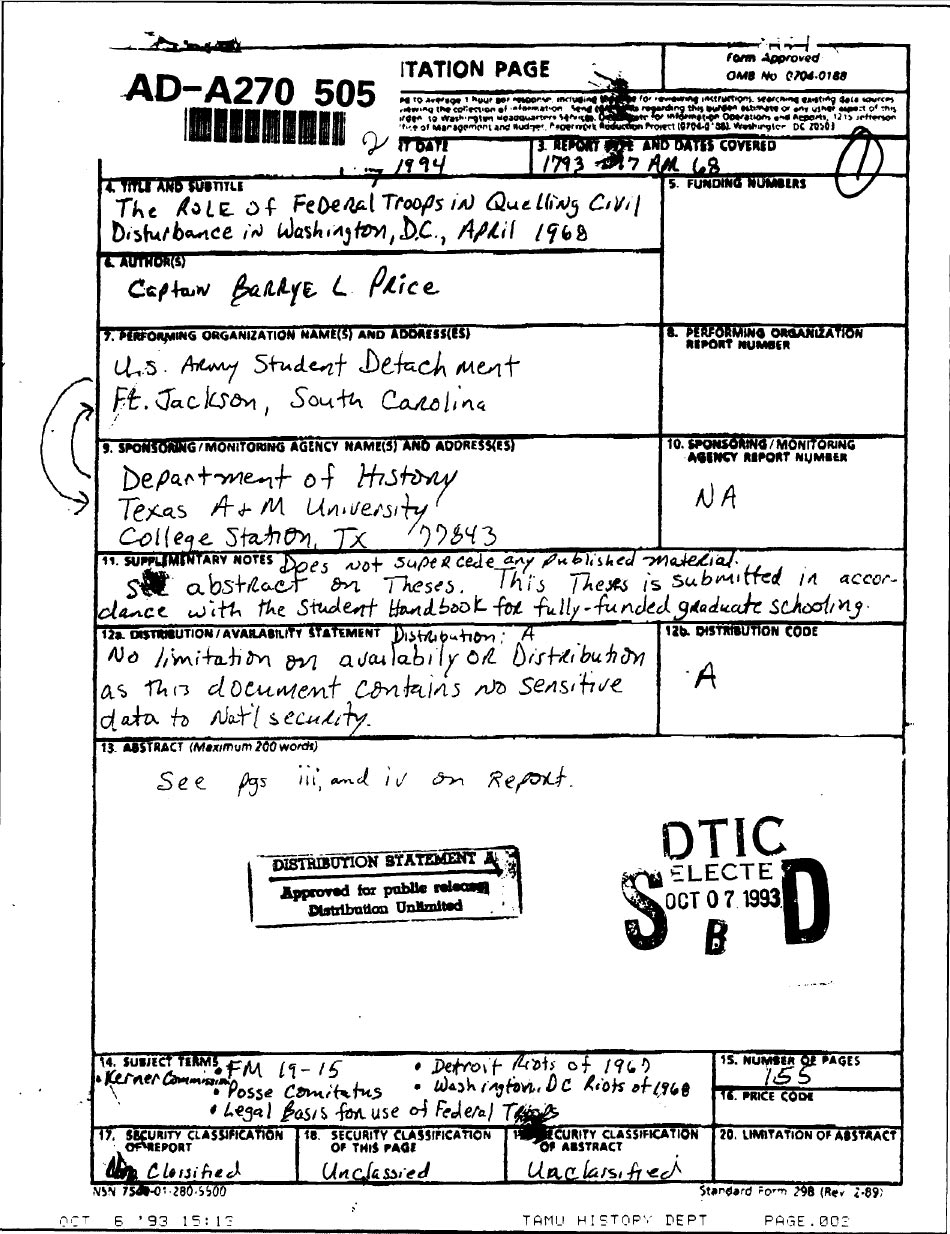 AD-A270 505
ITATION PAGE
Form Approved
OMB No 0704-0188
ed to average 1 hour per response, including the for reviewing instructions, searching existing data sources
viewing the collection of information. Send regarding this burden estimate or any other aspect of this
to Washington Headquarters Services, for Information Operations and Reports, 1215 Jefferson
ffice of Management and Budget, Paperwork Reduction Project (0704-0188), Washington DC 20503
2
T DATE
1994
3. REPORT AND DATES COVERED
1793 7 APR 68
1
4. TITLE AND SUBTITLE
The ROLE of Federal Troops in Quelling Civil
Disturbance in Washington, D.C., April 1968
5. FUNDING NUMBERS
6. AUTHOR(S)
Captain BARRYE L. Price
7. PERFORMING ORGANIZATION NAME(S) AND ADDRESS(ES)
U.S. Army Student Detachment
Ft. Jackson, South Carolina
8. PERFORMING ORGANIZATION
REPORT NUMBER
9. SPONSORING/MONITORING AGENCY NAME(S) AND ADDRESS(ES)
Department of History
Texas A+M University
College Station, Tx 77843
10. SPONSORING/MONITORING
AGENCY REPORT NUMBER
NA
11. SUPPLEMENTARY NOTES Does not supercede any published material.
See abstract on Theses. This Theses is submitted in accor-
dance with the Student Handbook for fully-funded graduate schooling.
12a. DISTRIBUTION/AVAILABILITY STATEMENT Distribution: A
No limitation on availabily OR Distribution
as this document contains no sensitive
data to Nat'l security.
12b. DISTRIBUTION CODE
A
13. ABSTRACT (Maximum 200 words)
See pgs iii, and iv on Report.
DISTRIBUTION STATEMENT A
Approved for public release
Distribution Unlimited
DTIC
ELECTE
OCT 07 1993
S B D
14. SUBJECT TERMS
• Kerner Commission
• FM 19-15
• Posse Comitatus
• Legal Basis for use of Federal Troops
• Detroit Riots of 1967
• Washington, DC Riots of 1968
15. NUMBER OF PAGES
155
16. PRICE CODE
17. SECURITY CLASSIFICATION
OF REPORT
Classified
18. SECURITY CLASSIFICATION
OF THIS PAGE
Unclassied
SECURITY CLASSIFICATION
OF ABSTRACT
Unclassified
20. LIMITATION OF ABSTRACT
NSN 7540-01-280-5500
Standard Form 298 (Rev 2-89)
OCT 6 '93 15:13
TAMU HISTORY DEPT
PAGE.002